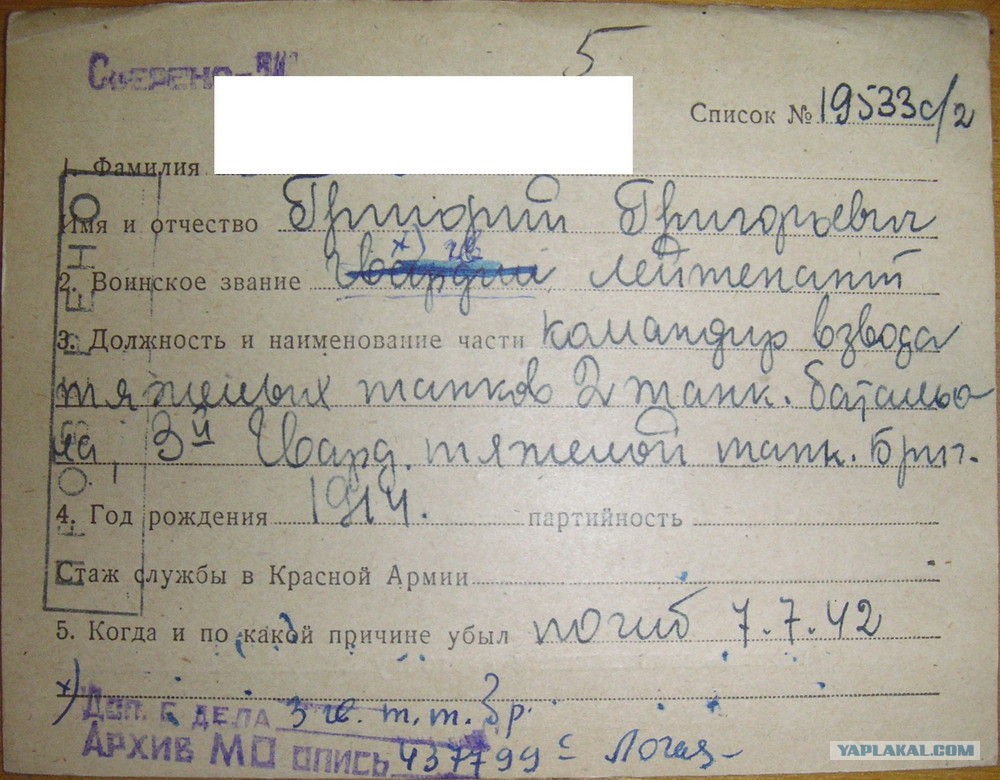 5
Сверено
Список № 19533с/2
1. Фамилия
Имя и отчество Григорий Григорьевич
2. Воинское звание гвардии х) гв. лейтенант
3. Должность и наименование части командир взвода
тяжелых танков 2 танк. батальо
на 3й Гвард. тяжелой танк. Бриг.
4. Год рождения 1914. партийность
Стаж службы в Красной Армии
5. Когда и по какой причине убыл погиб 7.7.42
х) Доп. с дела 3 гв. т. т. бр.
Архив МО опись 437799с
ПРОВЕРЕНО
YAPLAKAL.COM